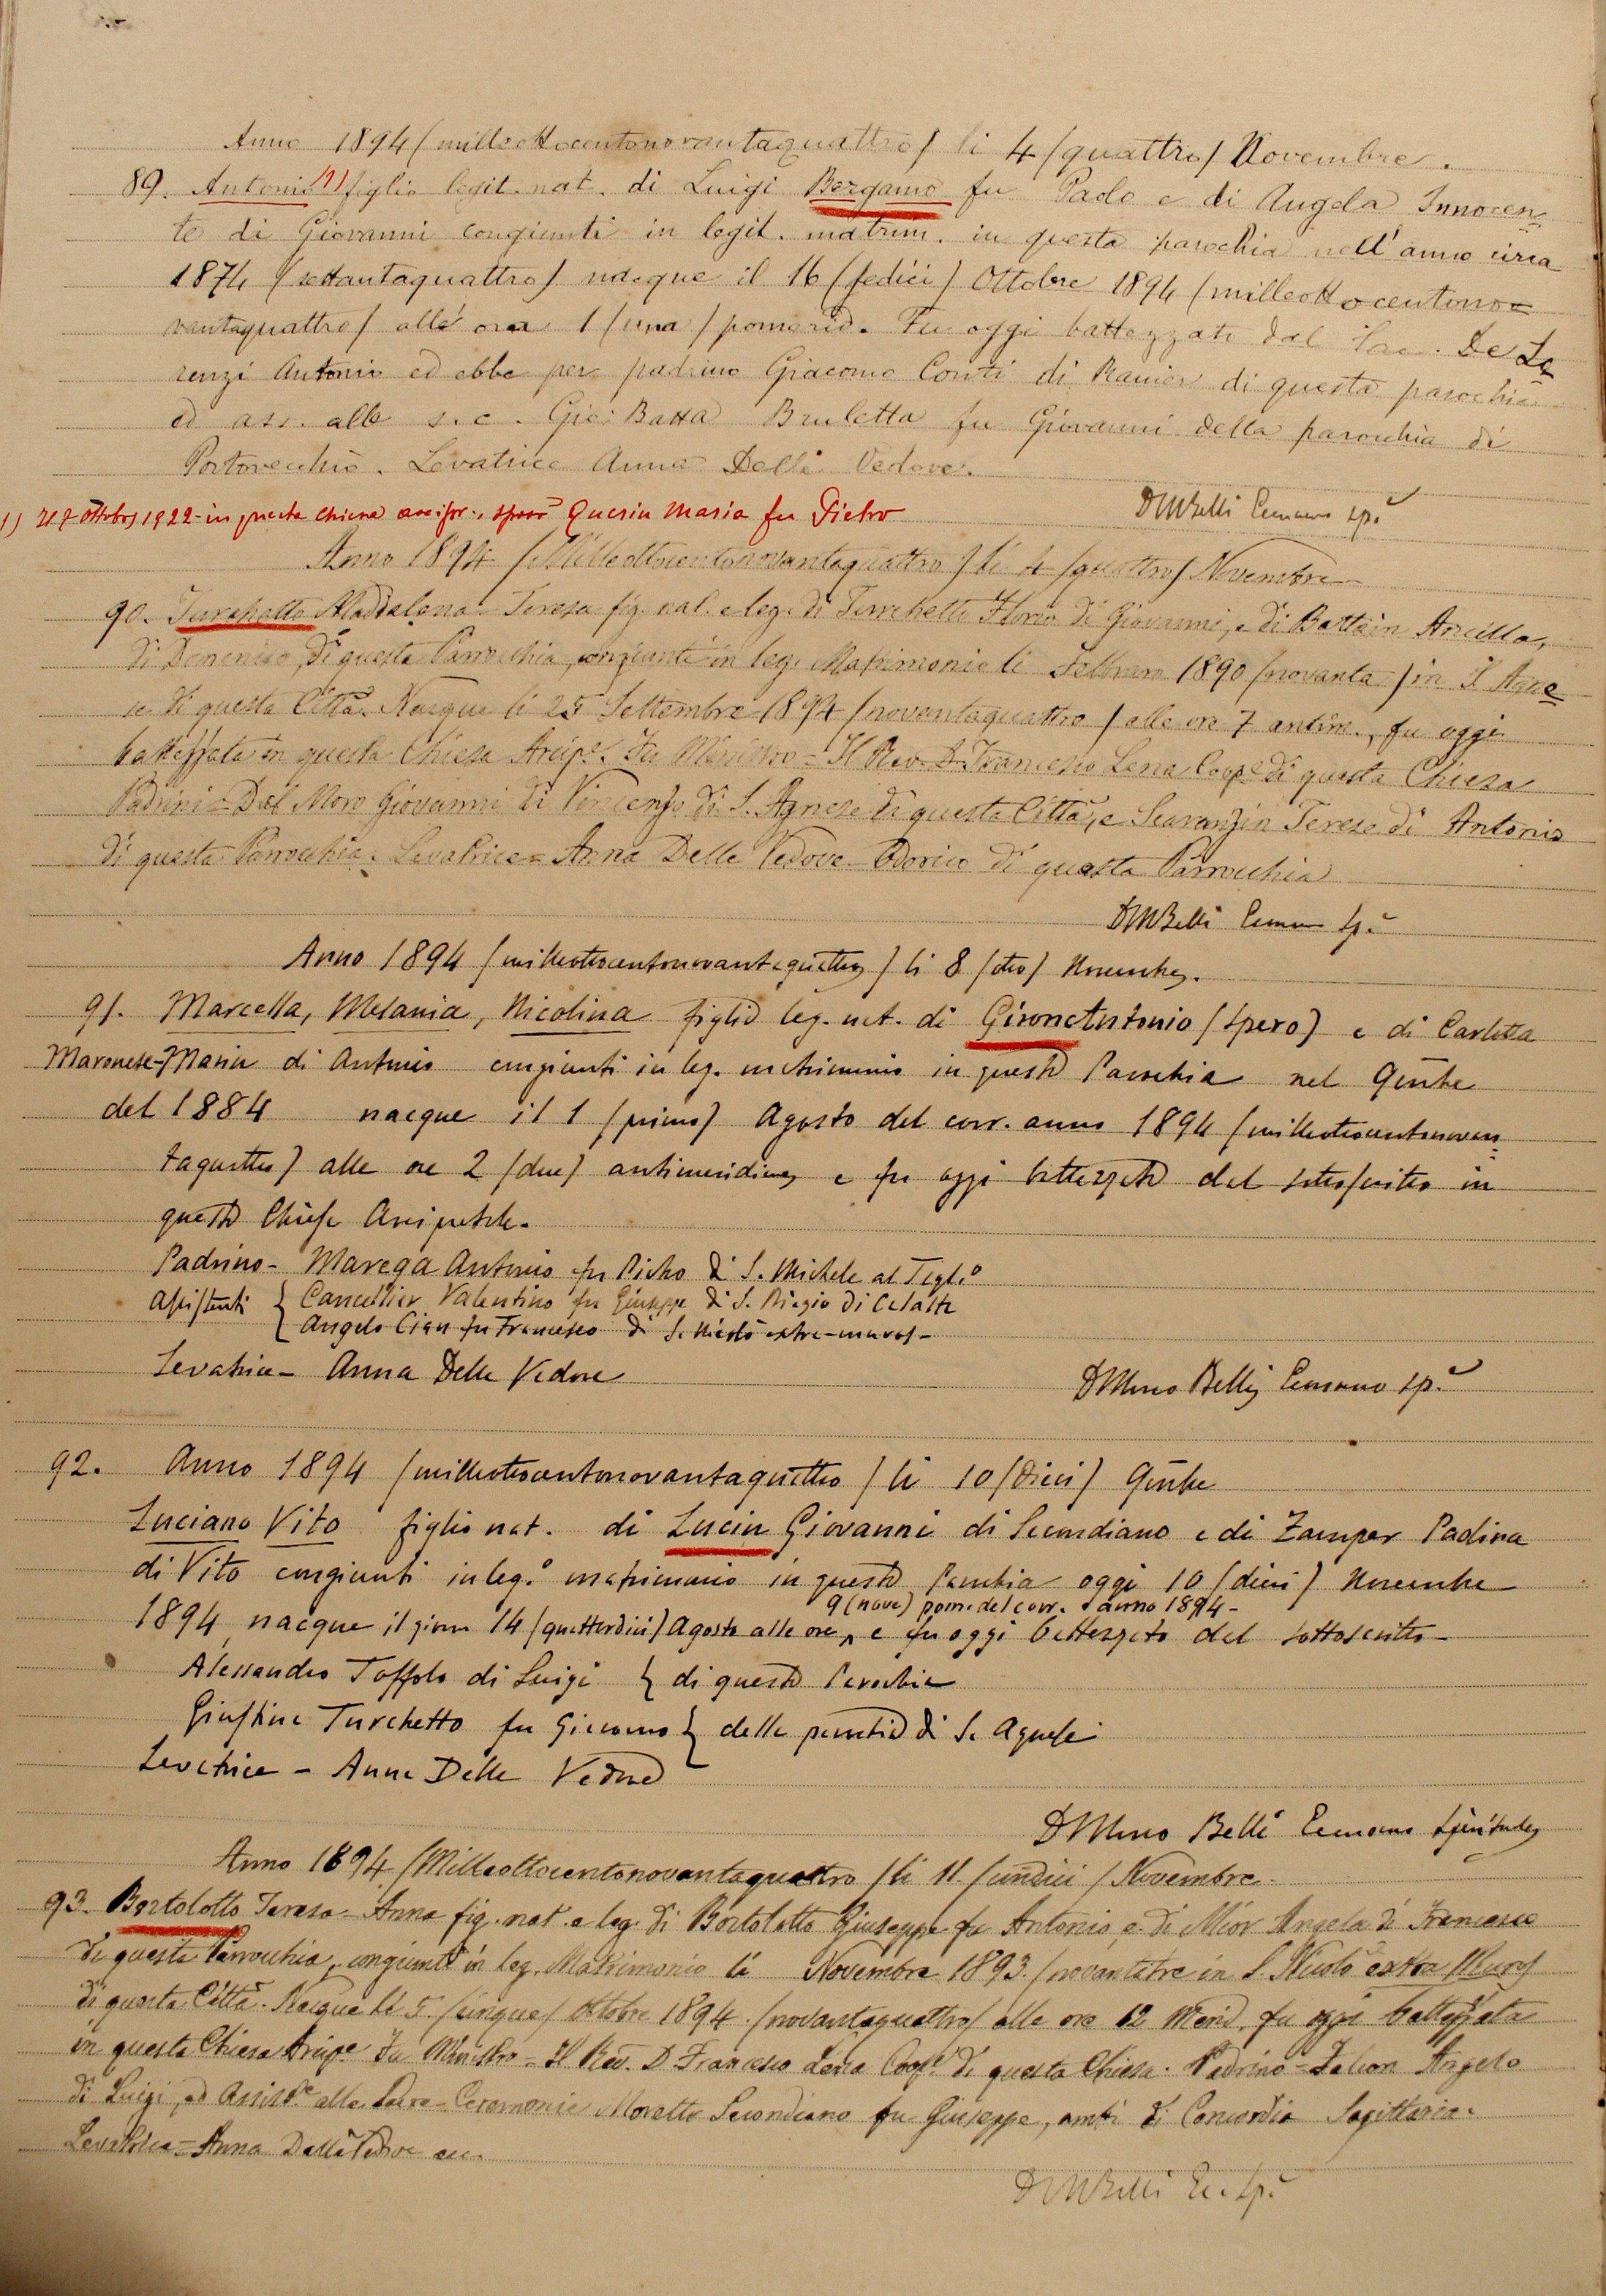 Anno 1894 (milleottocentonovantaquattro) li 4 (quattro) Novembre.
89. Antonio 1) figlio legit. nat. di Luigi Bergamo fu Paolo e di Angela Innocen=
te di Giovanni congiunti in legit. matrim. in questa parochia nell'anno circa
1874 (settantaquattro) nacque il 16 (sedici) Ottobre 1894 (milleottocentono=
vantaquattro) alle ora 1 (una) pomerid. Fu oggi battezzato dal Sac. De Lo
renzi Antonio ed ebbe per padrino Giacomo Conti di Ranieri di questa parochia
ed ass. alle s. c. Gio: Batta Bruletta fu Giovanni della parochia di
Portovecchio. Levatrice Anna Delle Vedove.
DMBelli Economo sp.e
1) Il 7 ottobre 1922 in questa chiesa arcipr. sposò Querin Maria fu Pietro
Anno 1894 (Milleottocentonovantaquattro) li 4 (quattro) Novembre
90. Turchetto Maddalena Teresa fig. nal. e leg. di Turchetto Florio di Giovanni, e di Battain Ancilla,
di Domenico, di questa Parrocchia, congiunti in leg. Matrimonio li Febbraro 1890 (novanta) in S. Agne=
se di questa Città. Nacque li 25 Settembre 1894 (novantaquattro) alle ore 7 antim., fu oggi
battezzata in questa Chiesa Arcip.e Fu Ministro = Il Rev. D. Francesco Lena Coop.e di questa Chiesa
Padrini = Dal Moro Giovanni di Vincenzo di S. Agnese di questa Città, e Scaranzin Teresa di Antonio
di questa Parrocchia. Levatrice = Anna Delle Vedove Odorico di questa Parrocchia
DMBelli Economo Sp.e
Anno 1894 (milleottocentonovantaquattro) li 8 (otto) Novembre.
91. Marcella, Melania, Nicolina figlia leg. nat. di Giron Antonio (Spero) e di Carlotta
Maronese-Maria di Antonio congiunti in leg. matrimonio in questa Parochia nel 9mbre
del 1884 nacque il 1 (primo) Agosto del corr. anno 1894 (milleottocentonovan=
taquattro) alle ore 2 (due) antimeridiane e fu oggi battezzata dal sottoscritto in
questa Chiesa Arcipretale.
Padrino - Marega Antonio fu Pietro di S. Michele al Tagl.o
Assistenti { Cancellier Valentino fu Giuseppe di S. Biagio di Callalta
{ Angelo Cian fu Francesco di S. Nicolò extra-muros -
Levatrice - Anna Delle Vedove
DMarco Belli Economo sp.e
92. Anno 1894 (milleottocentonovantaquattro) li 10 (dieci) 9mbre
Luciano Vito figlio nat. di Lucin Giovanni di Secondiano e di Zamper Paolina
di Vito congiunti in leg.o matrimonio in questa Parochia oggi 10 (dieci) Novembre
9 (nove) pom. del corr. anno 1894 -
1894, nacque il giorno 14 (quattordici) Agosto alle ore ^ e fu oggi battezzato dal sottoscritto -
Alessandro Toffolo di Luigi } di questa Parochia
Giustina Turchetto fu Giacomo } della parochia di S. Agnese
Levatrice - Anna Delle Vedove
DMarco Belli Economo Spirituale
Anno 1894 (Milleottocentonovantaquattro) li 11 (undici) Novembre.
93. Bortolotto Teresa-Anna fig. nat. e leg. di Bortolotto Giuseppe fu Antonio, e di Mior Angela di Francesco
di questa Parrocchia, congiunti in leg. Matrimonio li Novembre 1893 (novantatre in S. Nicolò extra Muros
di questa Città. Nacque li 5 (cinque) Ottobre 1894 (novantaquattro) alle ore 12 Merid. fu oggi battezzata
in questa Chiesa Arcip.e Fu Ministro = Il Rev. D. Francesco Lena Coop.e di questa Chiesa. Padrino = Falcon Angelo
di Luigi, ed Assist.e alle Sacre-Ceremonie Moretto Secondiano fu Giuseppe, ambi di Concordia Sagittaria.
Levatrice = Anna Delle Vedove
DMBelli Ec. Sp.e